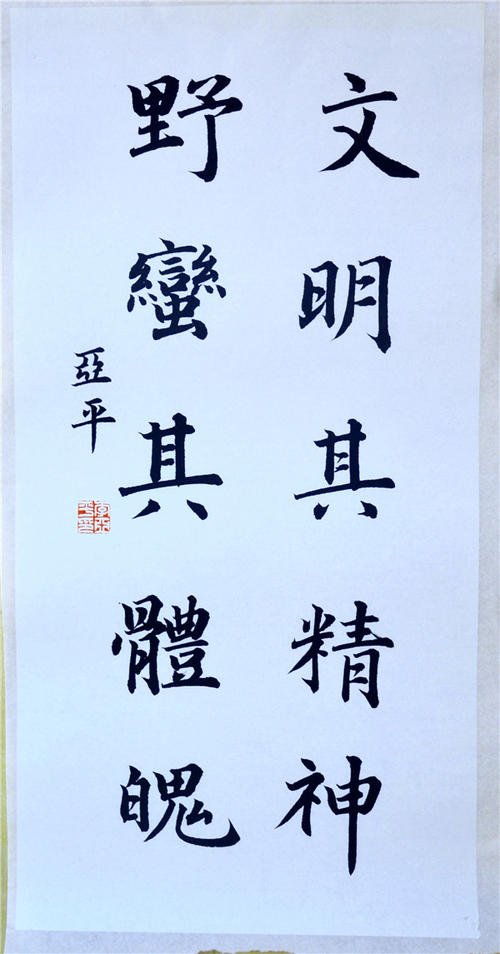 文明其精神
野蠻其體魄
亞平